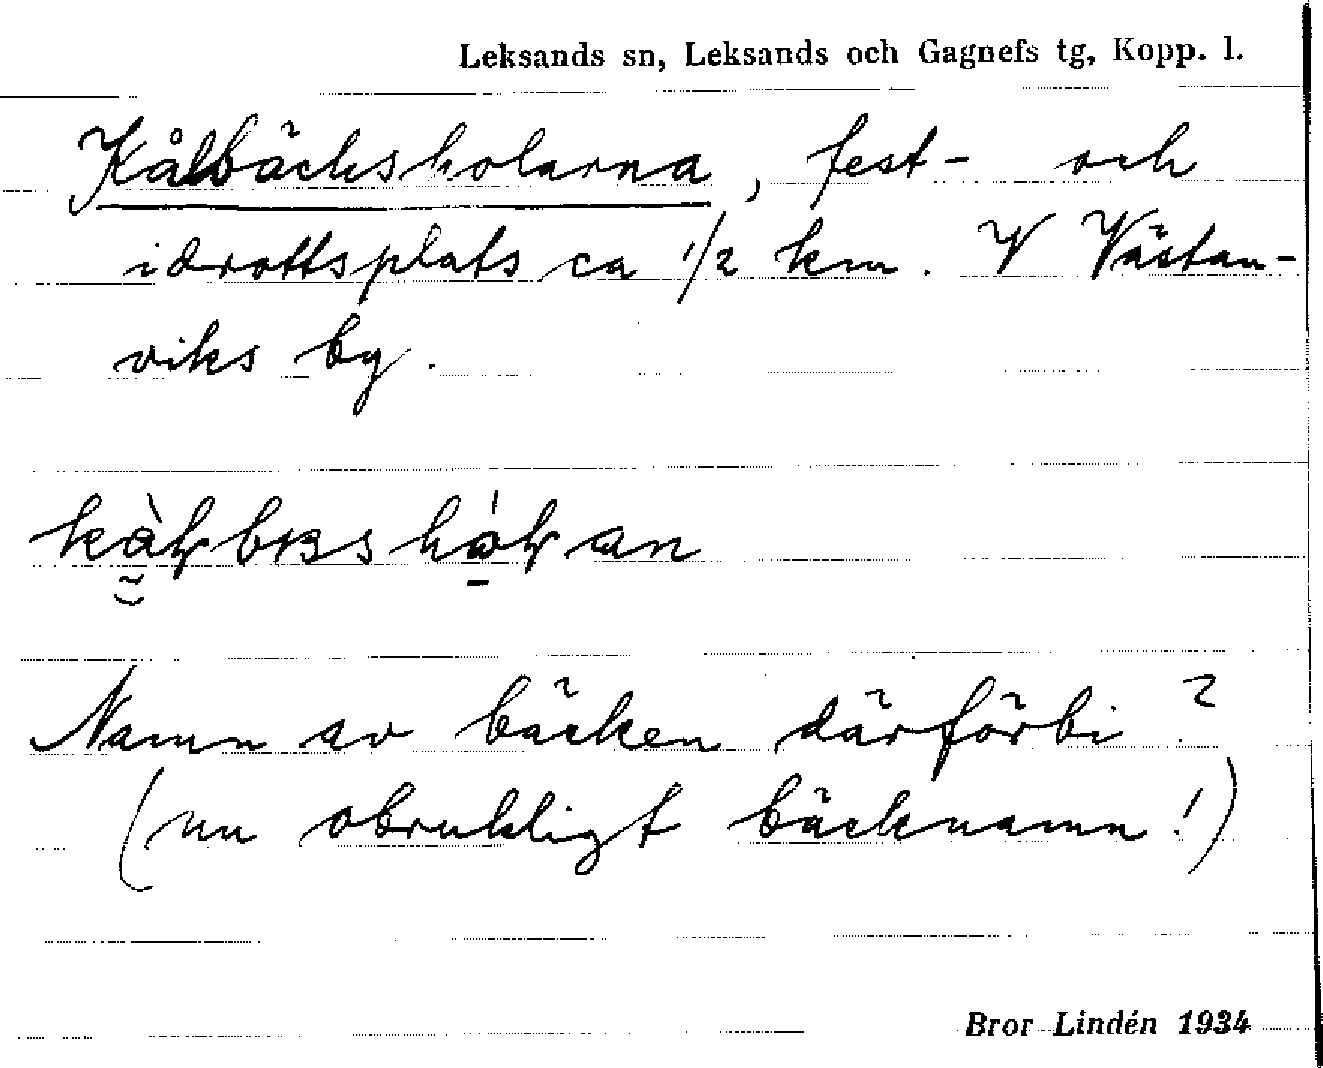 Leksands sn, Leksands och Gagnefs tg, Kopp. l.
Kålbäcksholarna, fest- och
idrottsplats ca 1/2 km. V Västan-
viks by.
Namn av bäcken därförbi?
(nu obrukligt bäcknamn!)
Bror Lindén 1934